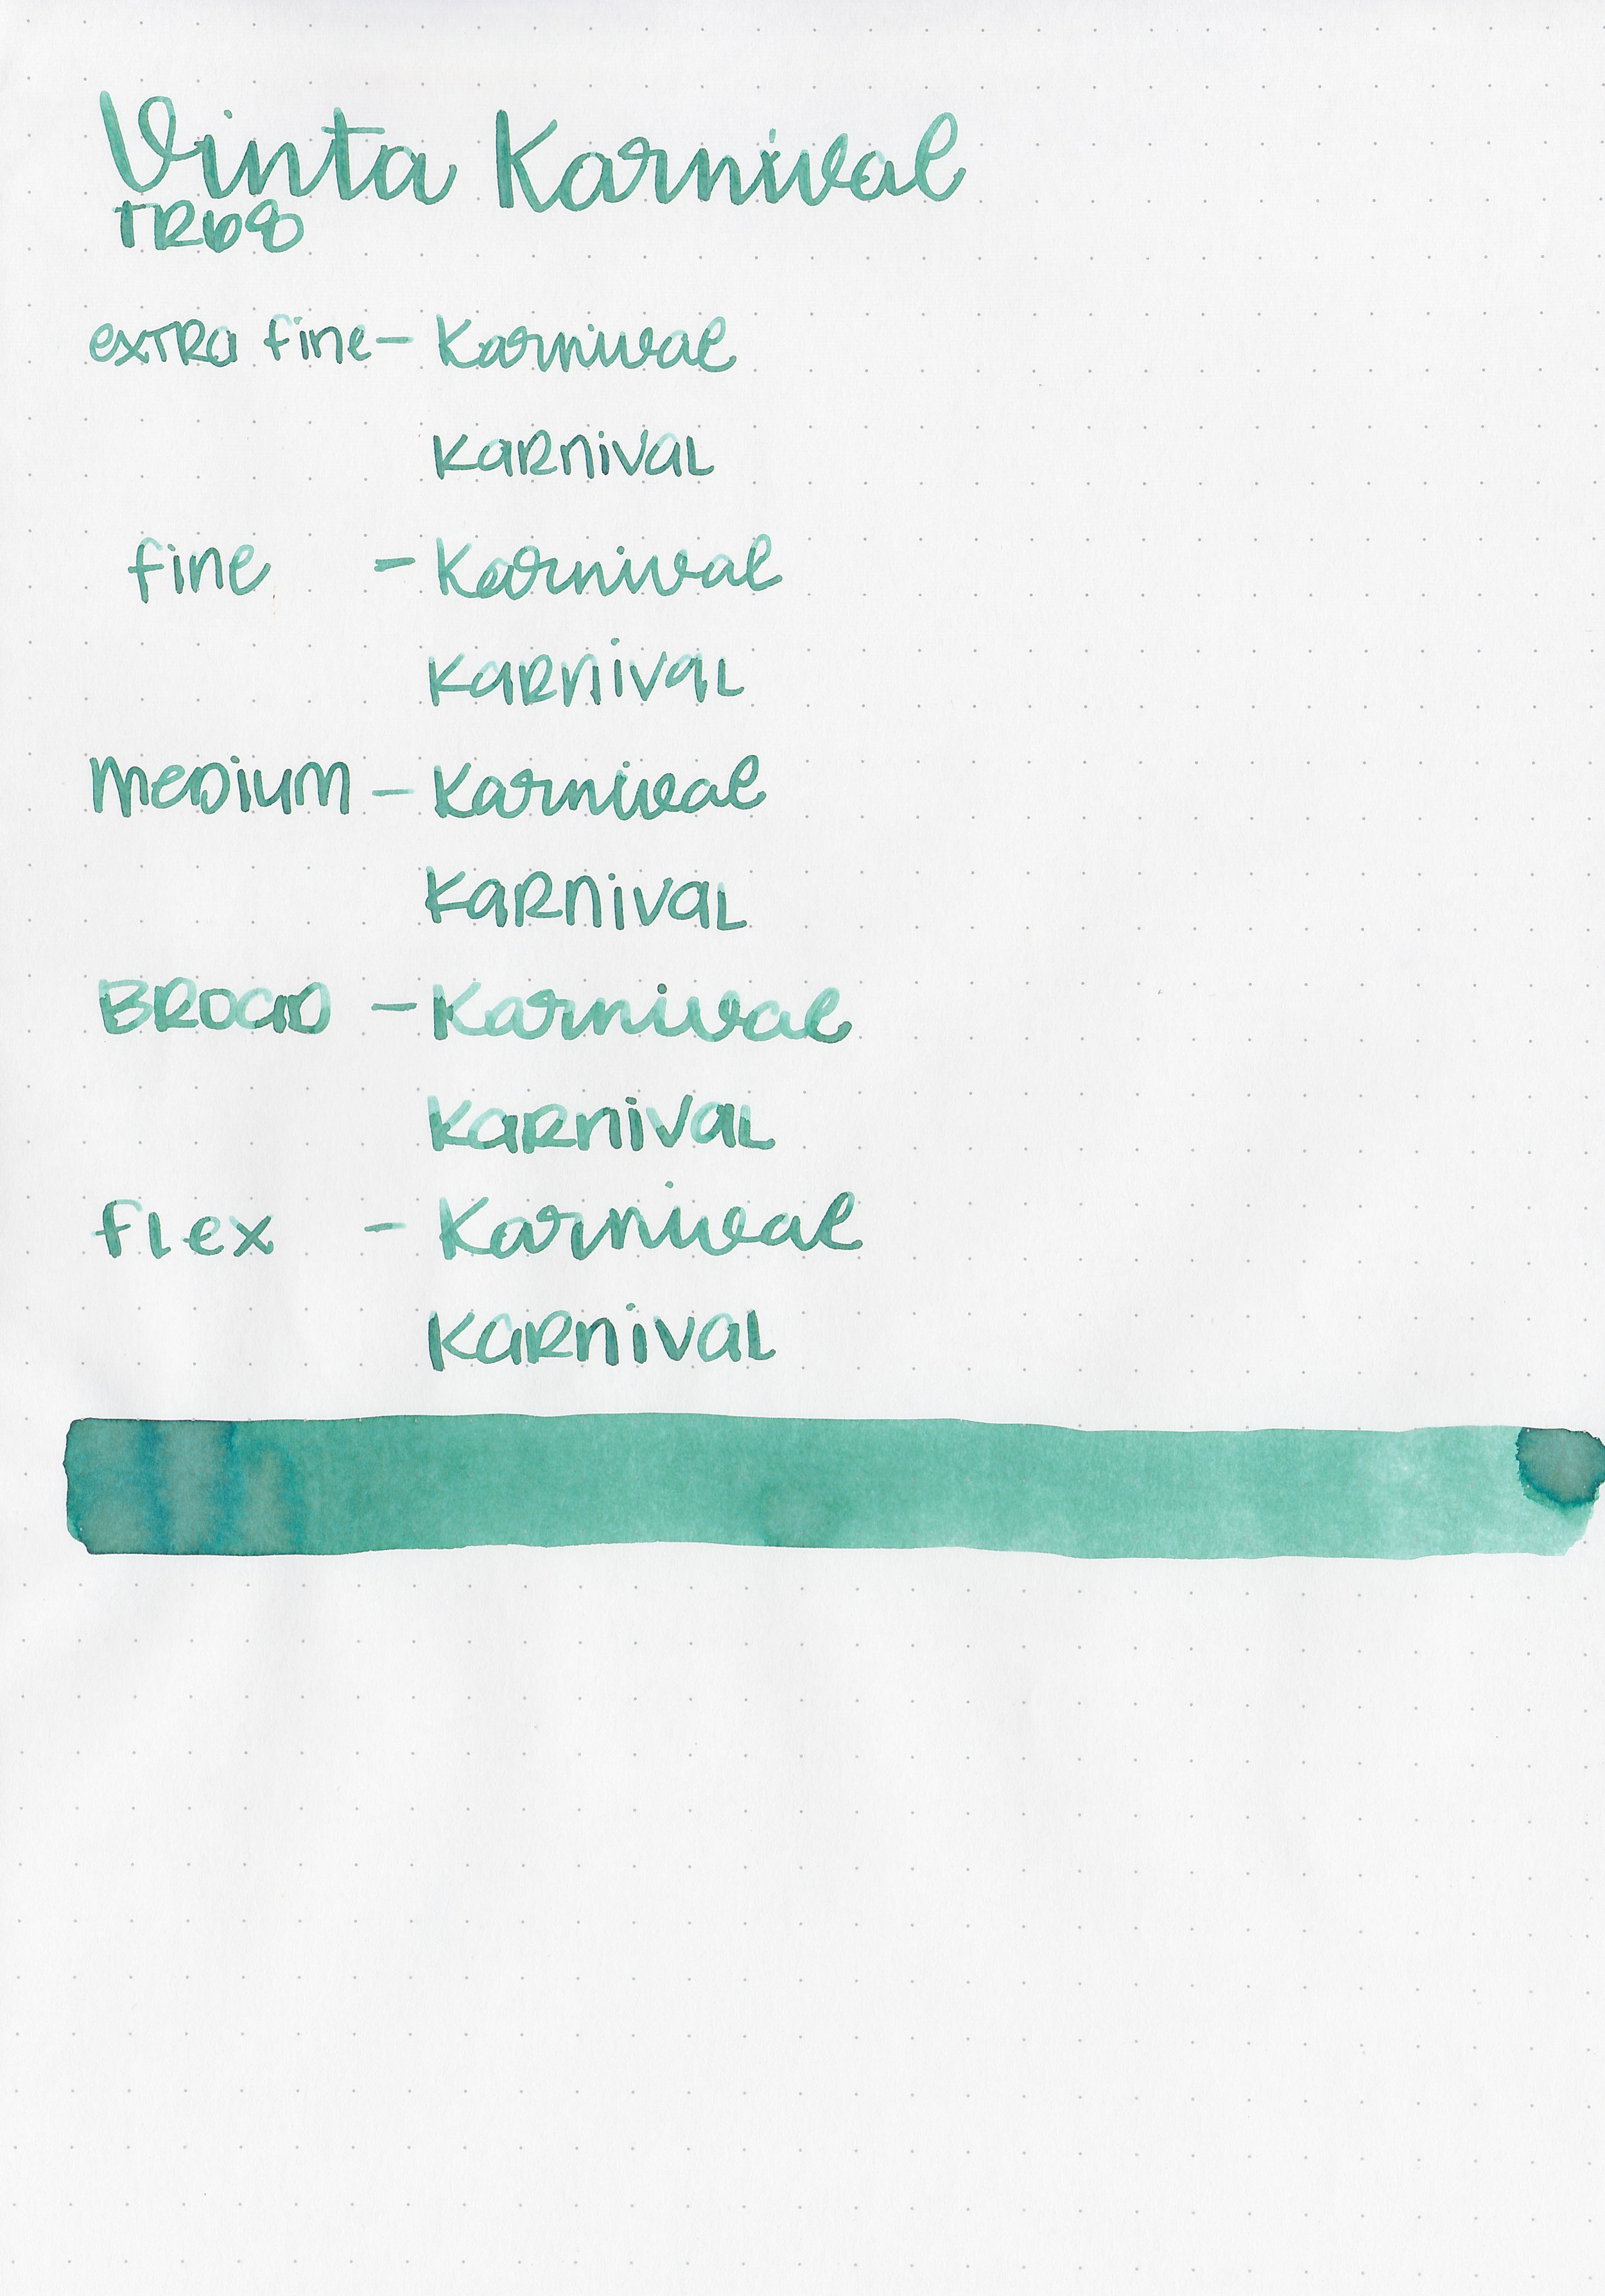 Vinta Karnival
TR68
exTRa fine - Karnival
KaRnivaL
fine - Karnival
KaRnivaL
MeDiuM - Karnival
KaRnivaL
BROaD - Karnival
KaRnivaL
fLex - Karnival
KaRnivaL